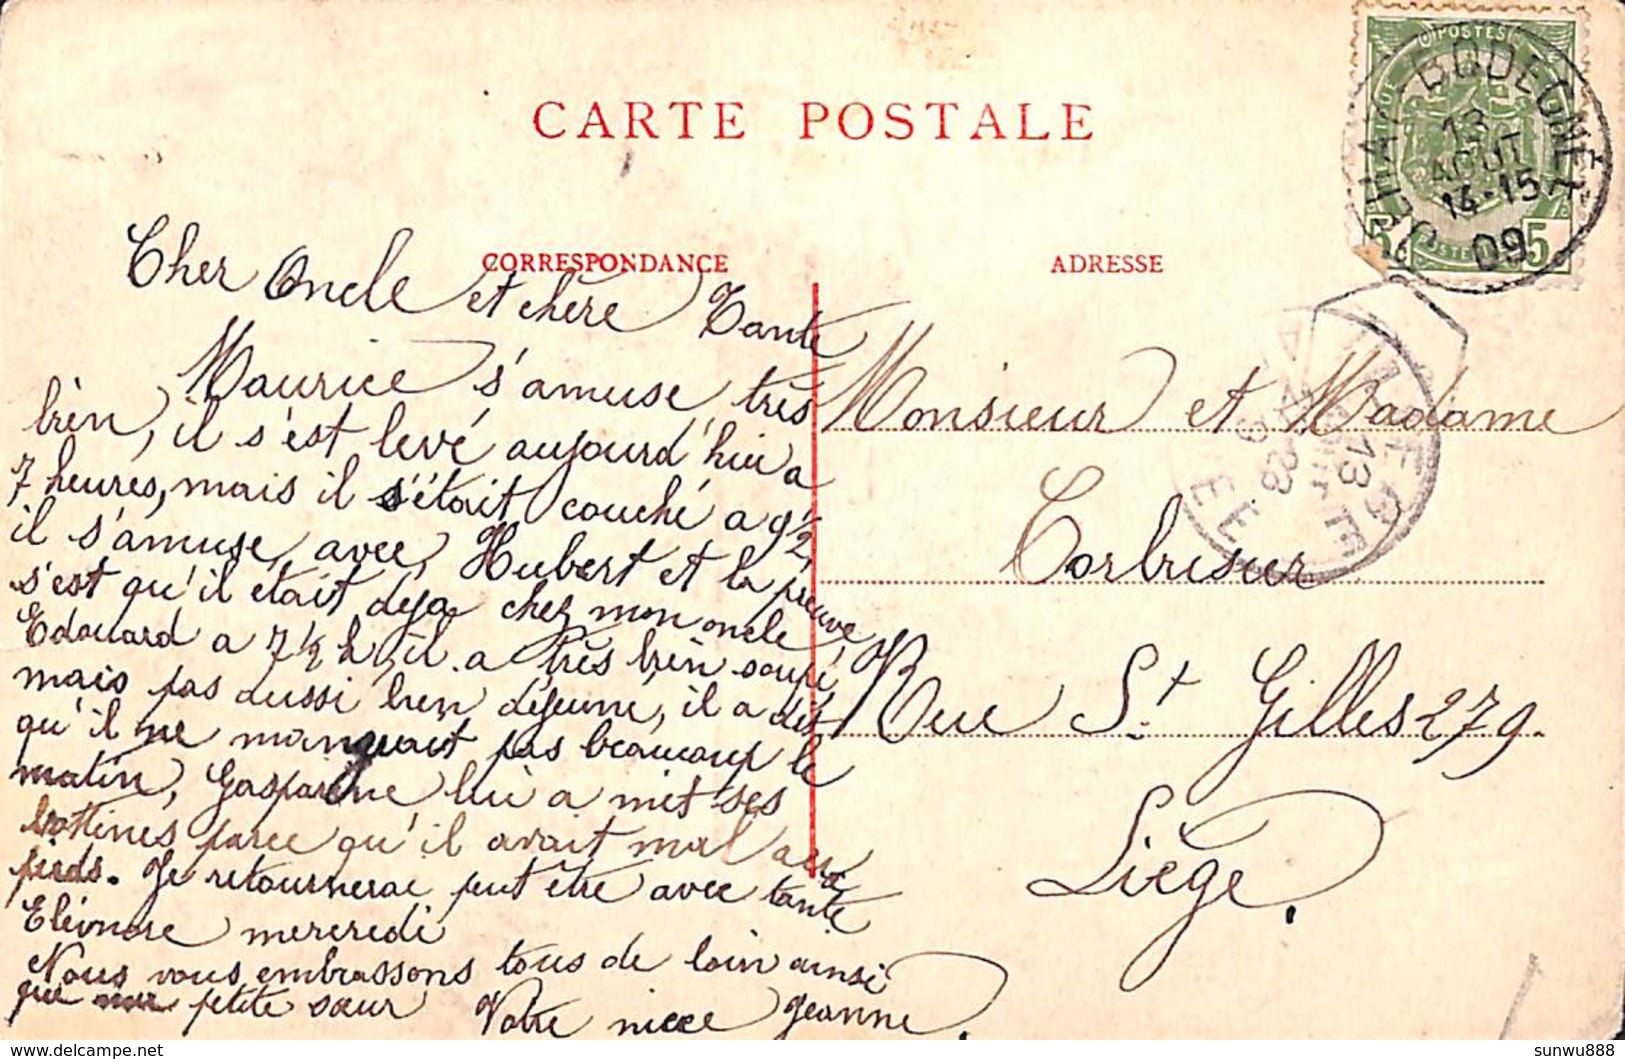 CARTE POSTALE
CORRESPONDANCE
ADRESSE
POSTES
5 5
BODEGNÉE
13
AOUT
14-15
09
LIEGE
13
Cher Oncle et chère Tante
Maurice s'amuse très
bien, il s'est levé aujourd'hui a
7 heures, mais il s'était couché a 9½
il s'amuse avec Hubert et la preuve,
s'est qu'il était déja chez mon oncle
Edouard a 7½ h, il a très bien soupé
mais pas aussi bien déjeuné, il a dit
qu'il ne manquait pas beaucoup le
matin, Gasparine lui a mit ses
bottines parce qu'il avait mal aux
pieds. Je retournerai peut être avec tante
Eléonore mercredi
Nous vous embrassons tous de loin ainsi
que petite sœur Votre niece Jeanne.
Monsieur et Madame
Corbusier
Rue St Gilles 279.
Liège.
sunwu888